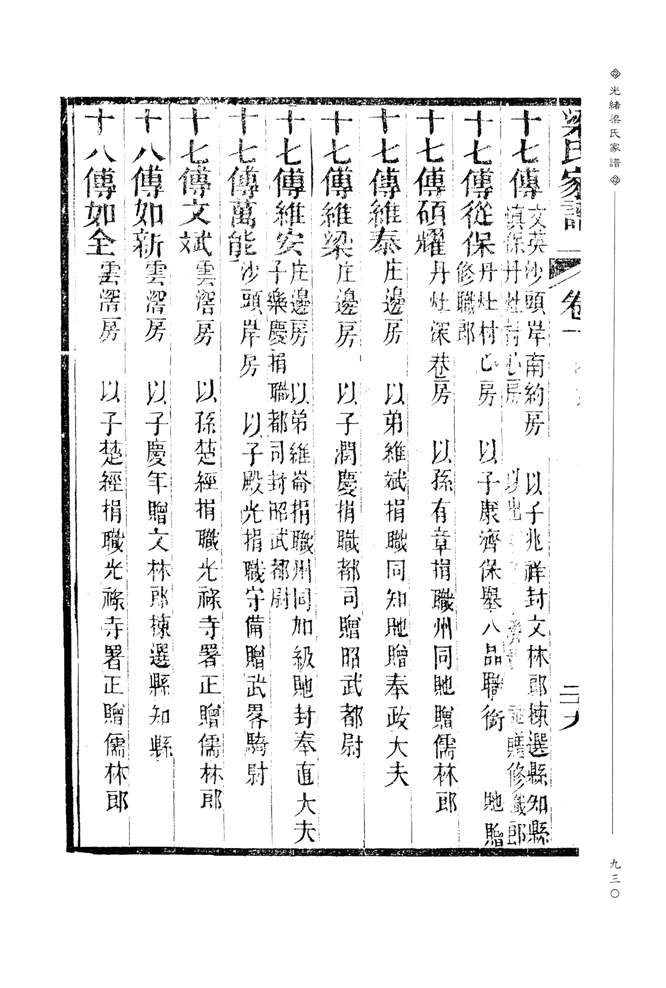 光緒梁氏家譜
九三〇
梁氏家譜 卷一
十七傳文英沙頭岸南約房 以子兆祥封文林郎揀選縣知縣
鎮保丹灶村心房 貤贈修職郎
十七傳從保丹灶村心房 以子康濟保舉八品職銜 貤贈
修職郎
十七傳碩耀丹灶深巷房 以孫有章捐職州同貤贈儒林郎
十七傳維泰庄邊房 以弟維斌捐職同知貤贈奉政大夫
十七傳維梁庄邊房 以子潤慶捐職都司贈昭武都尉
十七傳維安庄邊房 以弟維崙捐職州同加級貤封奉直大夫
子樂慶捐職都司封昭武都尉
十七傳萬能沙頭岸房 以子殿光捐職守備贈武畧騎尉
十七傳文斌雲滘房 以孫楚經捐職光祿寺署正贈儒林郎
十八傳如新雲滘房 以子慶年贈文林郎揀選縣知縣
十八傳如全雲滘房 以子楚經捐職光祿寺署正贈儒林郎